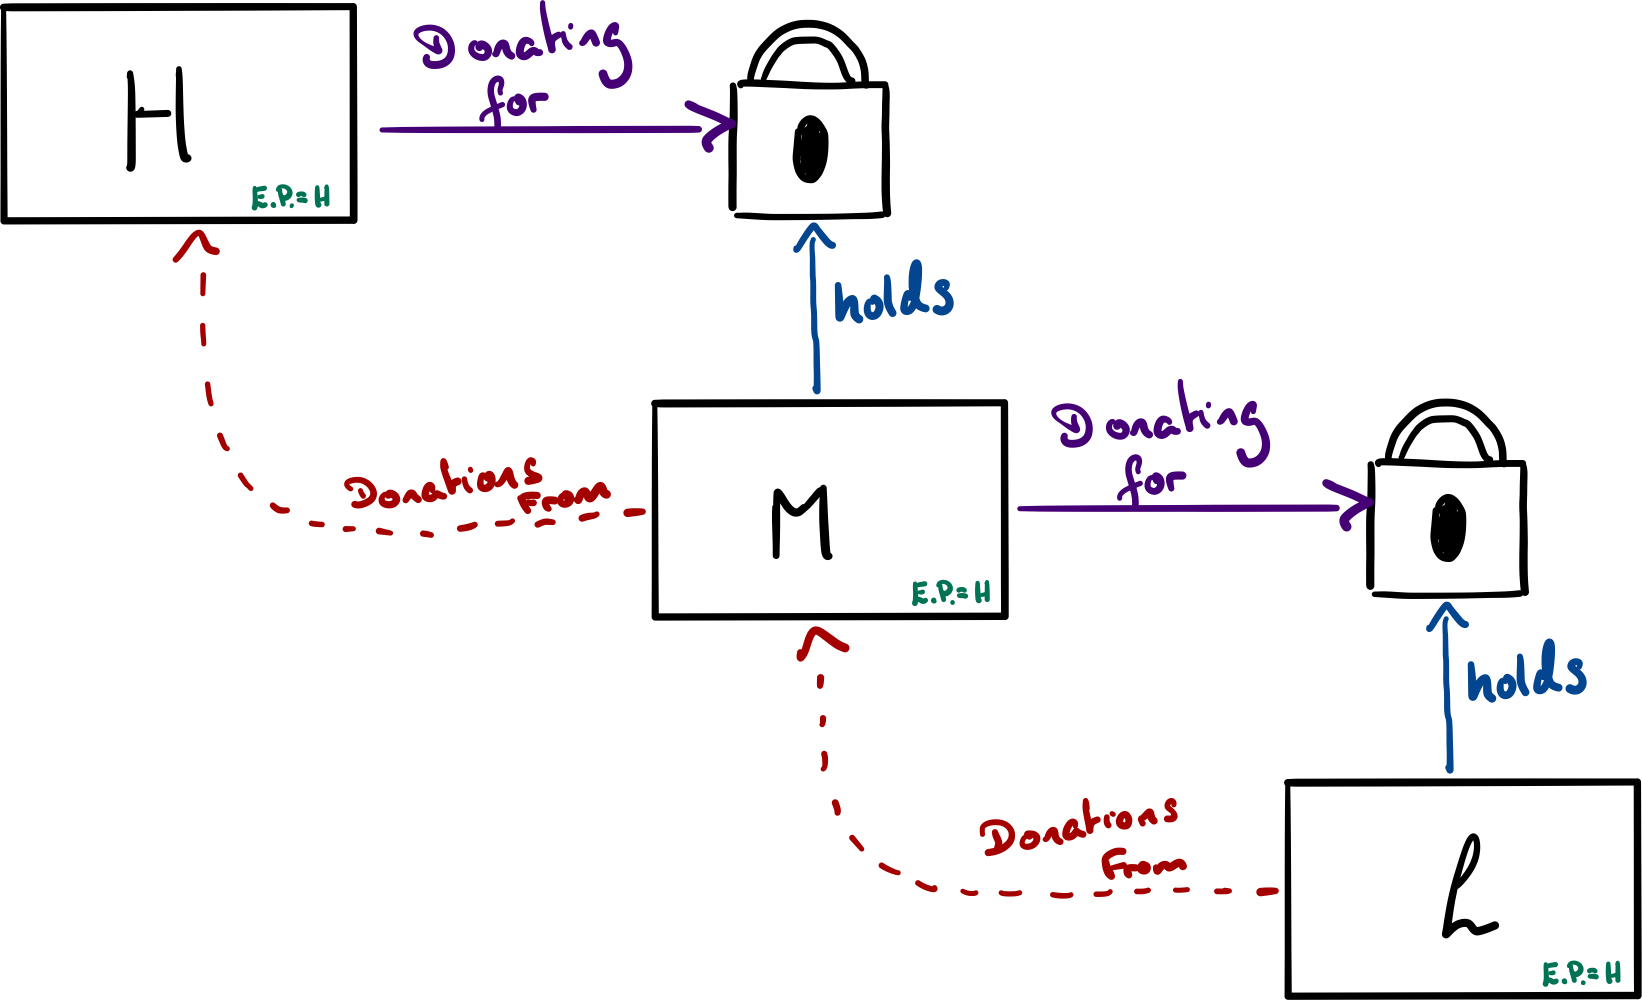 H
E.P.= H
Donating
for
holds
Donations
From
M
E.P.= H
Donating
for
holds
Donations
From
L
E.P.= H